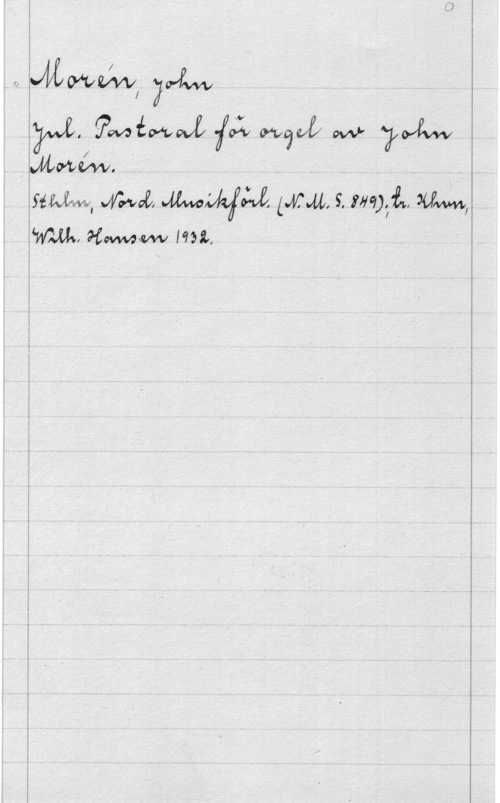 Morén, John
Jul. Pastoral för orgel av John
Morén.
Sthlm, Nord. Musikförl. (N. M. S. 849); tr. Khvn,
Wilh. Hansen 1932.